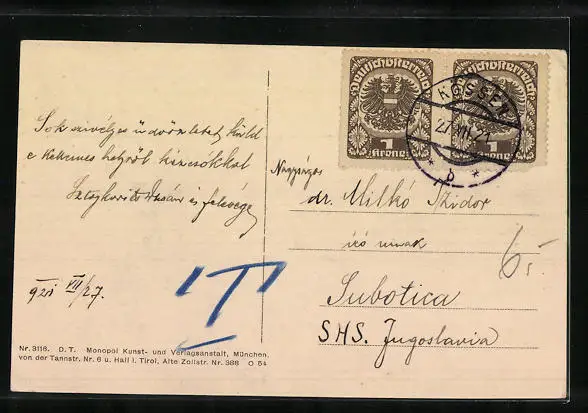 Sok szivélyes üdvözletet küld
e kellemes helyről kézcsókkal
Dusán és felesége
921 VII/27.
Nr. 3116. D. T. Monopol Kunst- und Verlagsanstalt, München,
von der Tannstr. Nr. 6 u. Hall i. Tirol, Alte Zollstr. Nr. 388 O 54
Deutschösterreich
1
Krone
Deutschösterreich
1
Krone
KÖSSEN
27.VII.21
* b *
T
Nagyságos
dr. Milkó Izidor
író urnak
Subotica
SHS. Jugoslavia